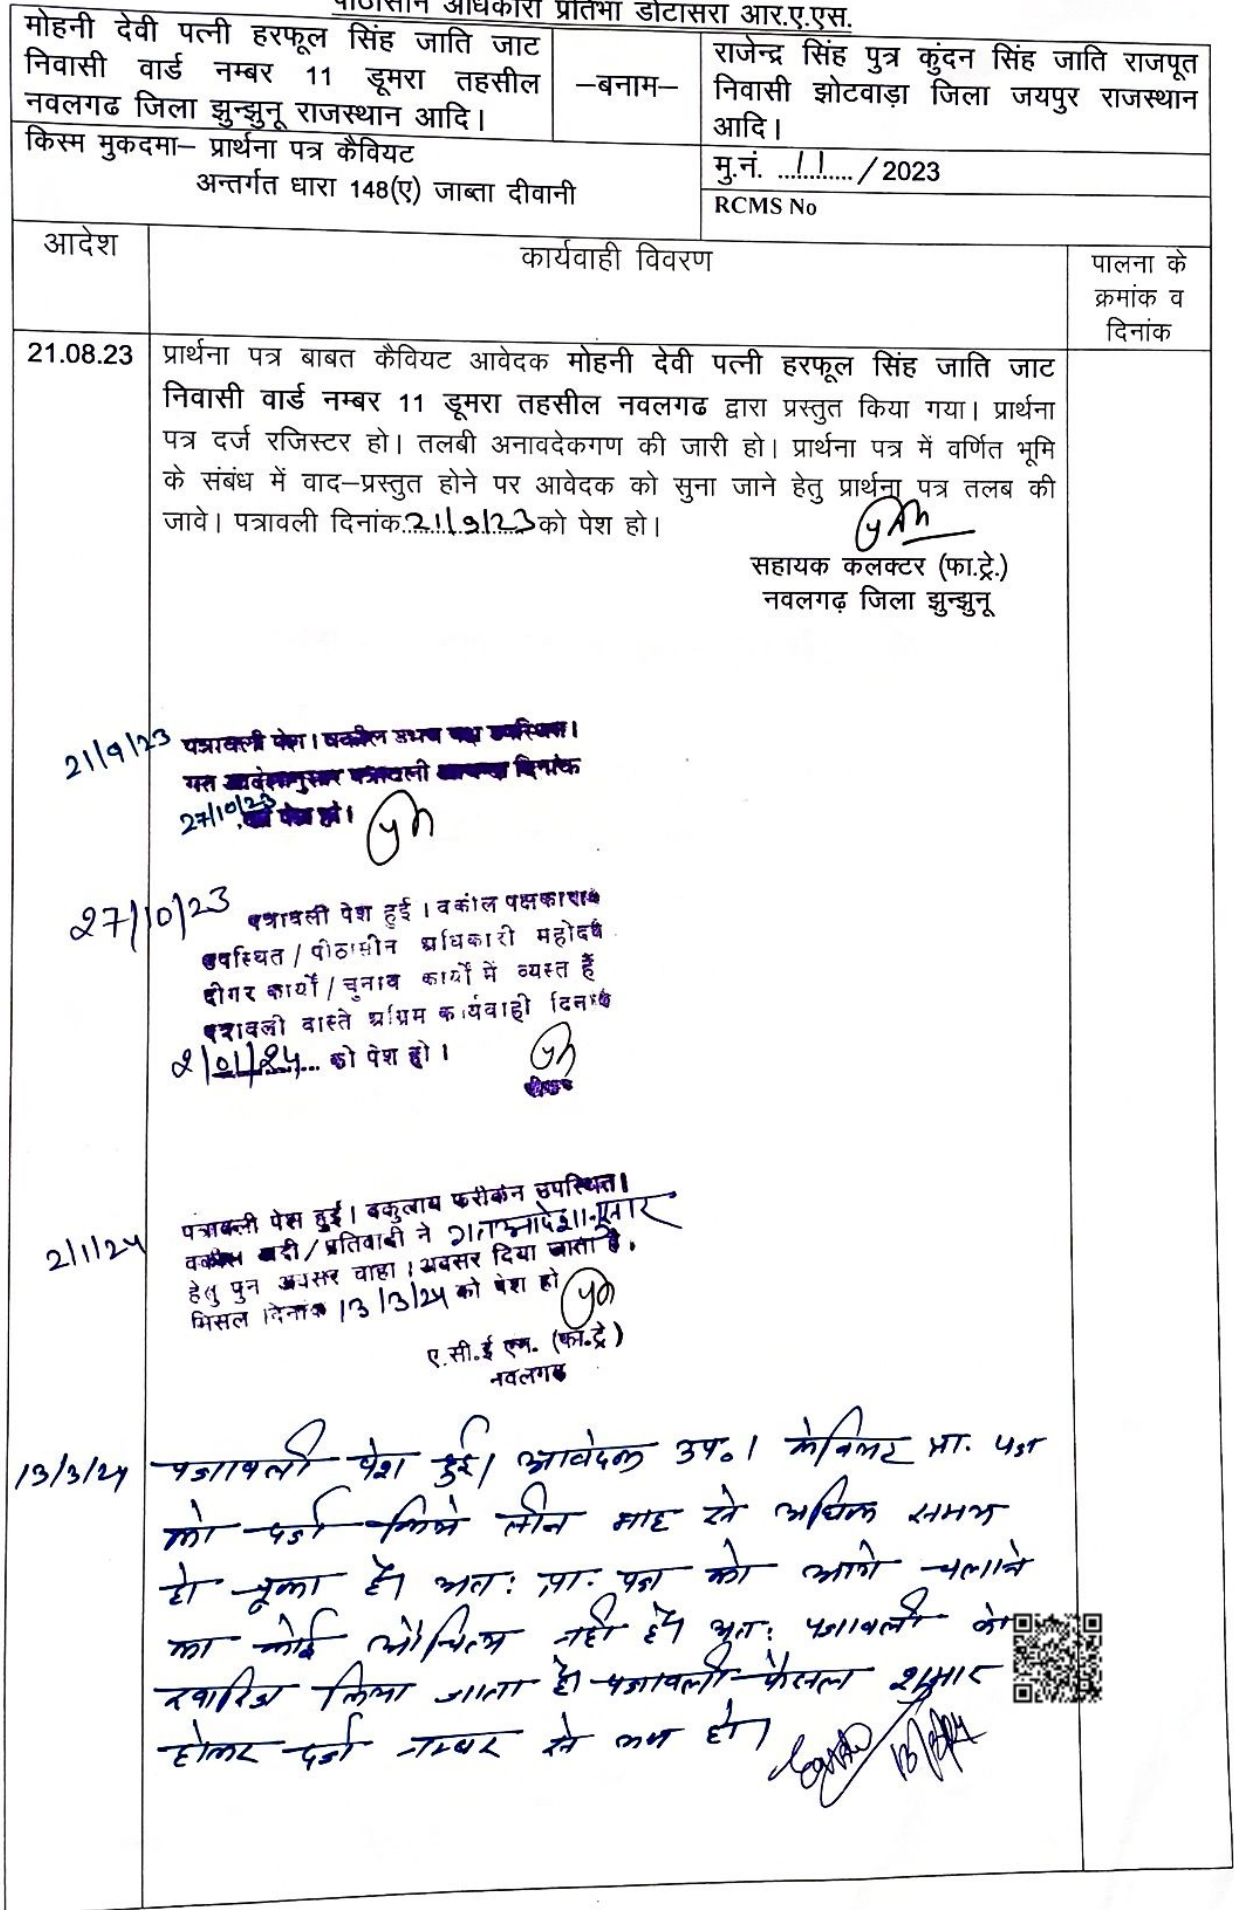 पीठासीन अधिकारी प्रतिभा डोटासरा आर.ए.एस.
मोहनी देवी पत्नी हरफूल सिंह जाति जाट
निवासी वार्ड नम्बर 11 डूमरा तहसील
नवलगढ जिला झुन्झुनू राजस्थान आदि।
–बनाम–
राजेन्द्र सिंह पुत्र कुंदन सिंह जाति राजपूत
निवासी झोटवाड़ा जिला जयपुर राजस्थान
आदि।
किस्म मुकदमा– प्रार्थना पत्र कैवियट
अन्तर्गत धारा 148(ए) जाब्ता दीवानी
मु.नं. ...11... / 2023
RCMS No
आदेश
कार्यवाही विवरण
पालना के
क्रमांक व
दिनांक
21.08.23
प्रार्थना पत्र बाबत कैवियट आवेदक मोहनी देवी पत्नी हरफूल सिंह जाति जाट
निवासी वार्ड नम्बर 11 डूमरा तहसील नवलगढ द्वारा प्रस्तुत किया गया। प्रार्थना
पत्र दर्ज रजिस्टर हो। तलबी अनावदेकगण की जारी हो। प्रार्थना पत्र में वर्णित भूमि
के संबंध में वाद–प्रस्तुत होने पर आवेदक को सुना जाने हेतु प्रार्थना पत्र तलब की
जावे। पत्रावली दिनांक 21/9/23 को पेश हो।
सहायक कलक्टर (फा.ट्रे.)
नवलगढ़ जिला झुन्झुनू
21/9/23 पत्रावली पेश। वकील उभय पक्ष उपस्थित।
गत आदेशानुसार पत्रावली दिनांक
27/10/23 को पेश हो।
27/10/23 पत्रावली पेश हुई। वकील पक्षकारान
उपस्थित / पीठासीन अधिकारी महोदय
दीगर कार्यों / चुनाव कार्यों में व्यस्त हैं
पत्रावली वास्ते अग्रिम कार्यवाही दिनांक
2/01/24... को पेश हो।
2/1/24 पत्रावली पेश हुई। वकुलाय फरीकेन उपस्थित।
वकील वादी / प्रतिवादी ने गत आदेशानुसार
हेतु पुन अवसर चाहा। अवसर दिया जाता है.
मिसल दिनांक 13/3/24 को पेश हो
ए.सी.ई एम. (फा.ट्रे)
नवलगढ
13/3/24 पत्रावली पेश हुई। आवेदक उप०। केवियट प्रा. पत्र
को दर्ज किये तीन माह से अधिक समय
हो चूका है। अत: प्रा. पत्र को आगे चलाने
का कोई औचित्य नही है। अत: पत्रावली को
खारिज किया जाता है। पत्रावली फैसल शुमार
होकर दर्ज नम्बर से कम हो।
13/3/24